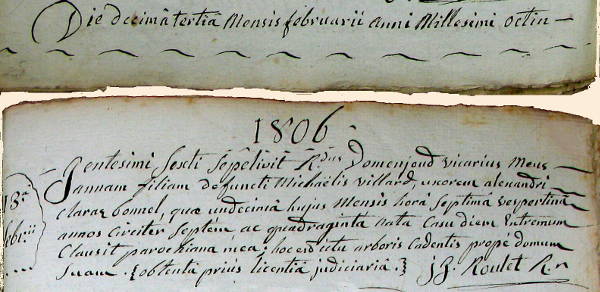 Die decimâ tertiâ Mensis februarii anni Millesimi octin—
1806.
gentesimi Sexti Sepelivit R.dus Domenjoud vicarius meus
Jannam filiam defuncti Michaëlis villard, uxorem alexandri
claraz bonnel, quæ undecimâ hujus Mensis horâ Septimâ vespertinâ
annos circiter Septem ac quadraginta nata Casu diem Extremum
Clausit parochiana mea, hoc est ictu arboris Cadentis propè domum
Suam. {obtentâ priùs licentiâ judiciariâ.} Roulet R.r
13.a